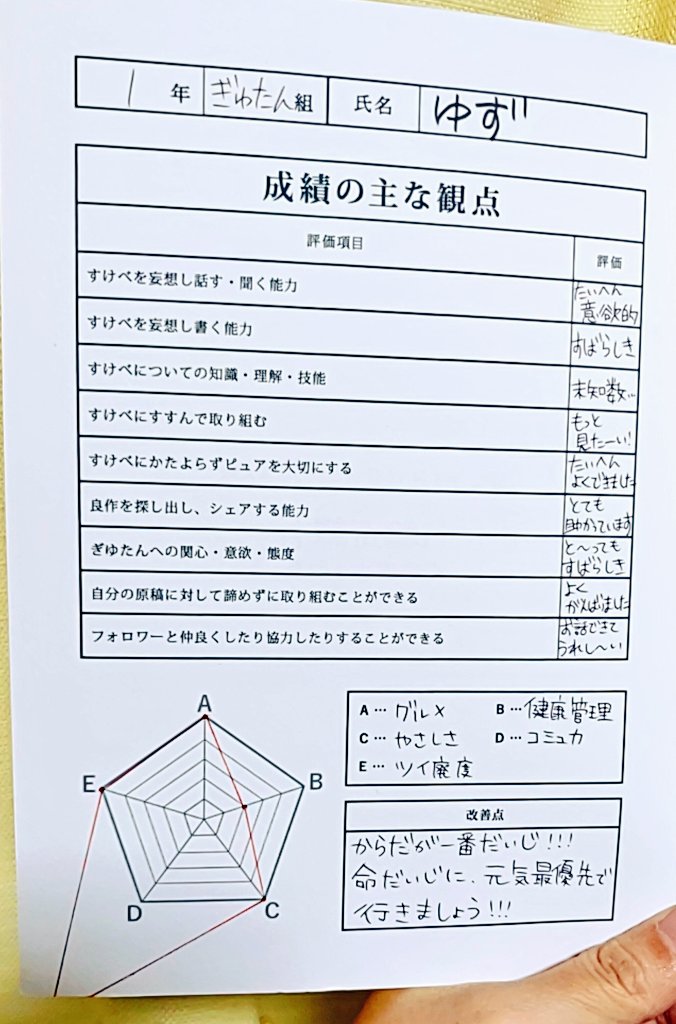 1年 ぎゅたん組 氏名 ゆず
成績の主な観点
評価項目 評価
すけべを妄想し話す・聞く能力 たいへん
意欲的
すけべを妄想し書く能力 すばらしき
すけべについての知識・理解・技能 未知数…
すけべにすすんで取り組む もっと
見たーい!
すけべにかたよらずピュアを大切にする たいへん
よくできました
良作を探し出し、シェアする能力 とても
助かっています
ぎゆたんへの関心・意欲・態度 と〜っても
すばらしき
自分の原稿に対して諦めずに取り組むことができる よく
がんばりました
フォロワーと仲良くしたり協力したりすることができる お話できて
うれし〜い
A
B
C
D
E
A … グルメ B … 健康管理
C … やさしさ D … コミュカ
E … ツイ廃度
改善点
からだが一番だいじ!!!
命だいじに、元気最優先で
行きましょう!!!